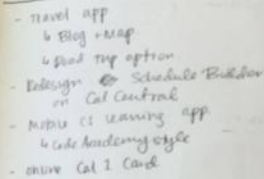 - Travel app
↳ Blog + Map
↳ Road Trip option
- Redesign Schedule Builder
on Cal Central
- Mobile CS learning app
↳ Code Academy style
- Online Cal 1 Card